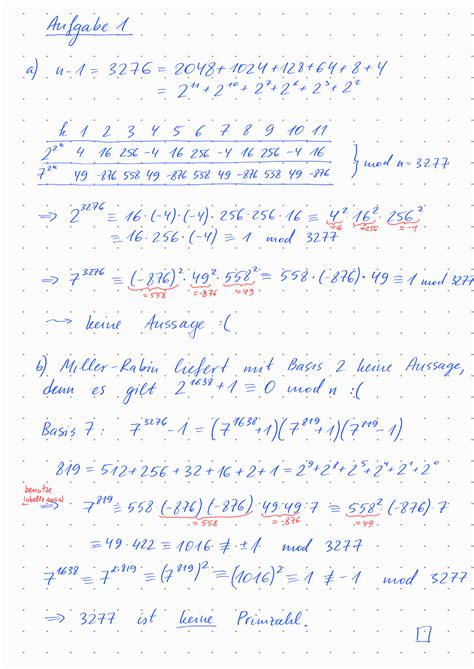 Aufgabe 1
a) n-1 = 3276 = 2048+1024+128+64+8+4
= 2^11 + 2^10 + 2^7 + 2^6 + 2^3 + 2^2
k 1 2 3 4 5 6 7 8 9 10 11
2^2^k 4 16 256 -4 16 256 -4 16 256 -4 16
7^2^k 49 -876 558 49 -876 558 49 -876 558 49 -876
} mod n = 3277
⇒ 2^3276 ≡ 16·(-4)·(-4)·256·256·16 ≡ 4^2 16^2 256^2
=16 =256 ≡-4
≡ 16·256·(-4) ≡ 1 mod 3277
⇒ 7^3276 ≡ (-876)^2 · 49^2 · 558^2 ≡ 558·(-876)·49 ≡ 1 mod 3277
=558 =-876 =49
⇝ keine Aussage :(
b) Miller-Rabin liefert mit Basis 2 keine Aussage,
denn es gilt 2^1638 + 1 ≡ 0 mod n :(
Basis 7: 7^3276 - 1 = (7^1638+1)(7^819+1)(7^819-1)
819 = 512 + 256 + 32 + 16 + 2 + 1 = 2^9 + 2^8 + 2^5 + 2^4 + 2^1 + 2^0
benutze
⇒ 7^819 ≡ 558 (-876)(-876)·49·49·7 ≡ 558^2·(-876)·7
=558 =-876 =49
≡ 49·422 ≡ 1016 ≢ ±1 mod 3277
7^1638 ≡ 7^2·819 ≡ (7^819)^2 ≡ (1016)^2 ≡ 1 ≢ -1 mod 3277
⇒ 3277 ist keine Primzahl.